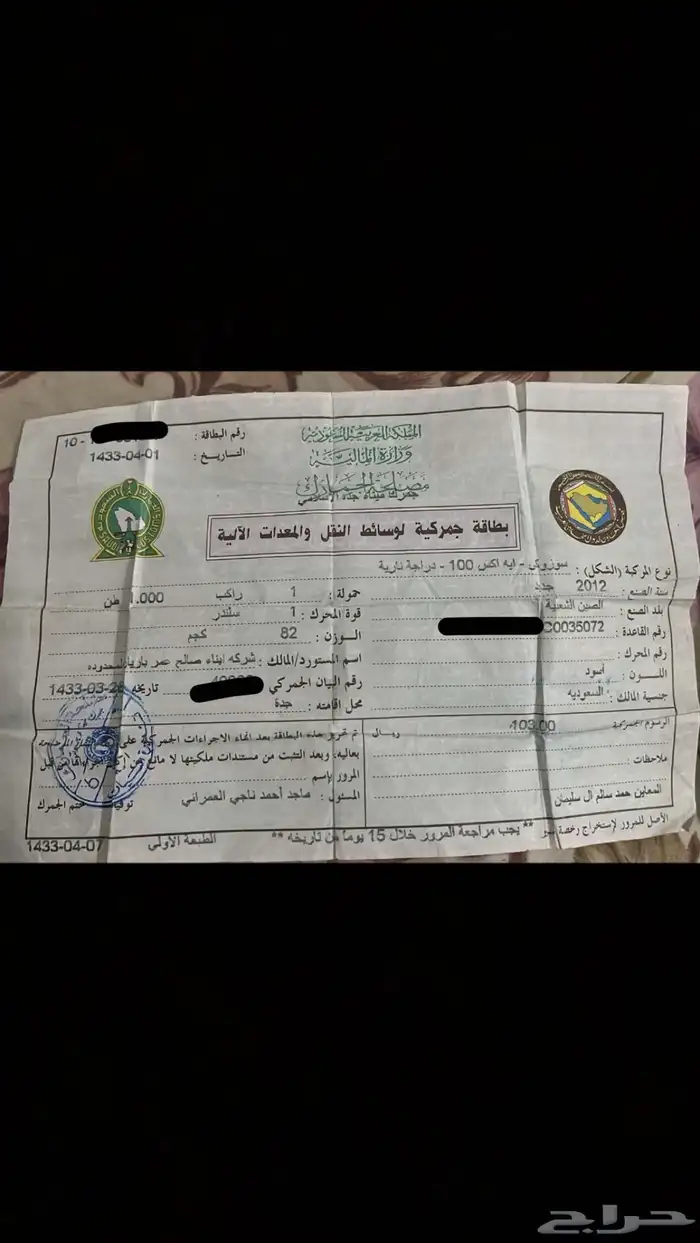 المملكة العربية السعودية
وزارة المالية
مصلحة الجمارك
جمرك ميناء جدة الإسلامي
رقم البطاقة : 10 -
التاريخ : 1433-04-01
بطاقة جمركية لوسائط النقل والمعدات الآلية
نوع المركبة (الشكل) : سوزوكي - ايه اكس 100 - دراجة نارية
سنة الصنع : 2012 جديد
حمولة : 1 راكب 1.000 طن
بلد الصنع : الصين الشعبية
قوة المحرك : 1 سلندر
رقم القاعدة : C0035072
الوزن : 82 كجم
رقم المحرك :
اسم المستورد/المالك : شركه ابناء صالح عمر باريان المحدوده
اللون : أسود
رقم البيان الجمركي تاريخه 1433-03-26
جنسية المالك : السعوديه
محل اقامته : جدة
الرسوم الجمركية 103.00 ريال
تم تحرير هذه البطاقة بعد انهاء الاجراءات الجمركية على
ملاحظات :
بعاليه، وبعد التثبت من مستندات ملكيتها لا مانع من
المرور باسم
المعاين حمد سالم ال سليمان
المسئول : ماجد أحمد ناجي العمراني
ختم الجمرك
الأصل للمرور لإستخراج رخصة سير
** يجب مراجعة المرور خلال 15 يوما من تاريخه **
الطبعة الأولى
1433-04-07
حراج